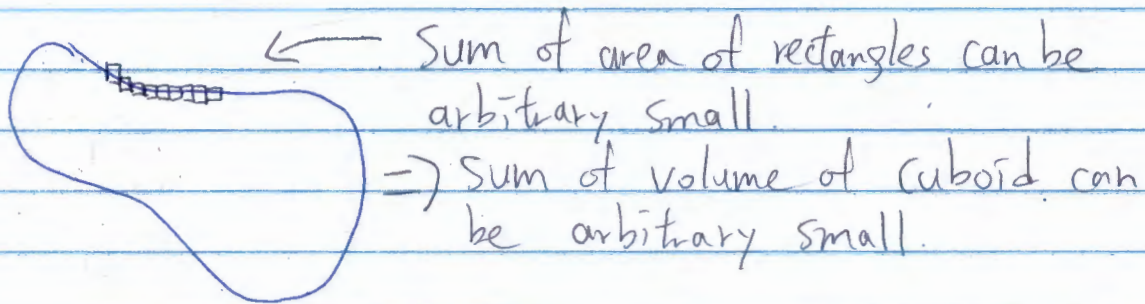 Sum of area of rectangles can be
arbitrary small.
=> Sum of volume of cuboid can
be arbitrary small.